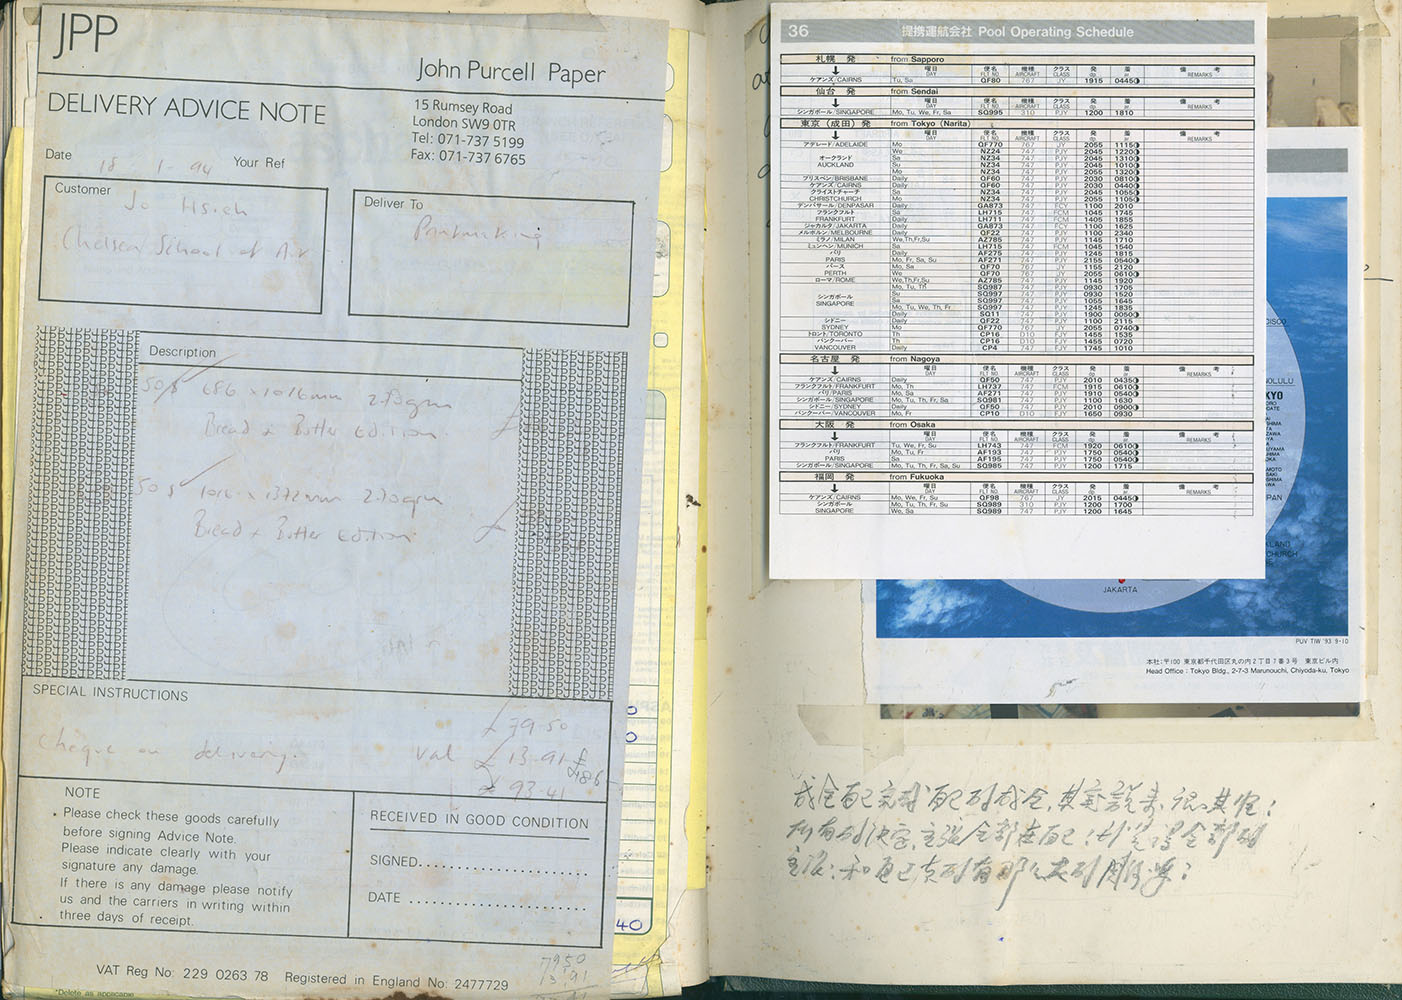 JPP
John Purcell Paper
DELIVERY ADVICE NOTE
15 Rumsey Road
London SW9 0TR
Tel: 071-737 5199
Fax: 071-737 6765
Date 18 - 1 - 94 Your Ref
Customer
Jo Hsieh
Chelsea School of Art
Deliver To
Printmaking
Description
50s 686 x 1016mm 270gsm
Bread & Butter Edition
50s 1016 x 1372mm 270gsm
Bread & Butter Edition
SPECIAL INSTRUCTIONS
£79-50
Cheque on delivery. Vat £13-91
£ 93-41
NOTE
Please check these goods carefully
before signing Advice Note.
Please indicate clearly with your
signature any damage.
If there is any damage please notify
us and the carriers in writing within
three days of receipt.
RECEIVED IN GOOD CONDITION
SIGNED
DATE
40
VAT Reg No: 229 0263 78 Registered in England No: 2477729
*Delete as applicable
7950
13.91
36 提携運航会社 Pool Operating Schedule
札幌 発 from Sapporo
曜日 DAY 便名 FLT NO. 機種 AIRCRAFT クラス CLASS 発 dp. 着 ar. 備考 REMARKS
ケアンズ/CAIRNS Tu, Sa QF80 767 JY 1915 0445
仙台 発 from Sendai
曜日 DAY 便名 FLT NO. 機種 AIRCRAFT クラス CLASS 発 dp. 着 ar. 備考 REMARKS
シンガポール/SINGAPORE Mo, Tu, We, Fr, Sa SQ995 310 PJY 1200 1810
東京(成田)発 from Tokyo (Narita)
曜日 DAY 便名 FLT NO. 機種 AIRCRAFT クラス CLASS 発 dp. 着 ar. 備考 REMARKS
アデレード/ADELAIDE Mo QF770 767 JY 2055 1115
オークランド AUCKLAND We NZ24 747 PJY 2045 1220
Sa NZ34 747 PJY 2045 1310
Su NZ34 747 PJY 2045 1010
Mo NZ34 747 PJY 2055 1320
ブリスベン/BRISBANE Daily QF60 747 PJY 2030 0810
ケアンズ/CAIRNS Daily QF60 747 PJY 2030 0440
クライストチャーチ CHRISTCHURCH Su NZ34 747 PJY 2045 1055
Mo NZ34 747 PJY 2055 1105
デンパサール/DENPASAR Daily GA873 747 FCY 1100 2010
フランクフルト FRANKFURT Sa LH715 747 FCM 1045 1745
Daily LH711 747 FCM 1405 1855
ジャカルタ/JAKARTA Daily GA873 747 FCY 1100 1625
メルボルン/MELBOURNE Daily QF22 747 PJY 1100 2340
ミラノ/MILAN We,Th,Fr,Su AZ785 747 PJY 1145 1710
ミュンヘン/MUNICH Sa LH715 747 FCM 1045 1540
パリ PARIS Daily AF275 747 PJY 1245 1815
Mo, Fr, Sa, Su AF271 747 PJY 2155 0540
パース PERTH Mo, Sa QF70 767 JY 1155 2120
We QF70 767 JY 2055 0610
ローマ/ROME We,Th,Fr,Su AZ785 747 PJY 1145 1920
シンガポール SINGAPORE Mo, Tu, Th SQ987 747 PJY 0930 1705
Su SQ997 747 PJY 0930 1520
Sa SQ997 747 PJY 1055 1645
Mo, Tu, We, Th, Fr SQ997 747 PJY 1245 1835
Daily SQ11 747 PJY 1900 0050
シドニー SYDNEY Daily QF22 747 PJY 1100 2115
Mo QF770 767 JY 2055 0740
トロント/TORONTO Th CP16 D10 PJY 1455 1535
バンクーバー VANCOUVER Th CP16 D10 PJY 1455 0720
Daily CP4 747 PJY 1745 1010
名古屋 発 from Nagoya
曜日 DAY 便名 FLT NO. 機種 AIRCRAFT クラス CLASS 発 dp. 着 ar. 備考 REMARKS
ケアンズ/CAIRNS Daily QF50 747 PJY 2010 0435
フランクフルト/FRANKFURT Mo, Th LH737 747 FCM 1915 0610
パリ/PARIS Mo, Sa AF271 747 PJY 1910 0540
シンガポール/SINGAPORE Mo, Tu, Th, Fr, Sa SQ981 747 PJY 1100 1630
シドニー/SYDNEY Daily QF50 747 PJY 2010 0900
バンクーバー/VANCOUVER Mo, Fr CP10 D10 PJY 1650 0930
大阪 発 from Osaka
曜日 DAY 便名 FLT NO. 機種 AIRCRAFT クラス CLASS 発 dp. 着 ar. 備考 REMARKS
フランクフルト/FRANKFURT Tu, We, Fr, Su LH743 747 FCM 1920 0610
パリ PARIS Mo, Tu, Fr AF193 747 PJY 1750 0540
Sa AF195 747 PJY 1750 0540
シンガポール/SINGAPORE Mo, Tu, Th, Fr, Sa, Su SQ985 747 PJY 1200 1715
福岡 発 from Fukuoka
曜日 DAY 便名 FLT NO. 機種 AIRCRAFT クラス CLASS 発 dp. 着 ar. 備考 REMARKS
ケアンズ/CAIRNS Mo, We, Fr, Su QF98 767 JY 2015 0445
シンガポール SINGAPORE Mo, Tu, Th, Fr, Su SQ989 310 PJY 1200 1700
We, Sa SQ989 747 PJY 1200 1645
CISCO
NOLULU
KYO
PAN
KLAND
CHURCH
JAKARTA
PUV TIW '93 9-10
本社:〒100 東京都千代田区丸の内2丁目7番3号 東京ビル内
Head Office : Tokyo Bldg., 2-7-3 Marunouchi, Chiyoda-ku, Tokyo
成全自己完成自己的成全,其實說來,很其他:
所有的決定,主張全部在自己!
主張:和自己真的有那么大的關係: